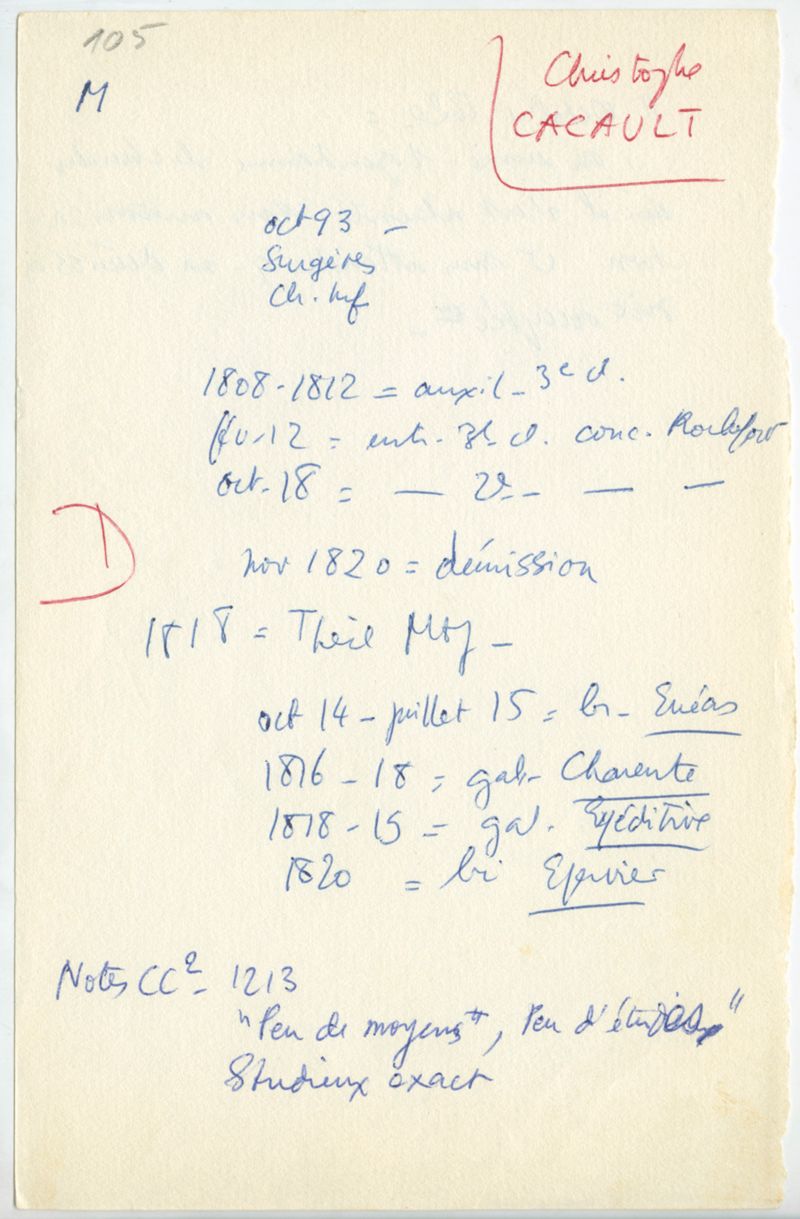 105
M
Christophe
CACAULT
oct 93 -
Surgères
Ch. Mf
1808-1812 = auxil - 3e cl.
fév. 12 = entr. 3e cl. conc. Rochefort
oct. 18 = — 2e - — —
D
nov 1820 = démission
1818 = Thèse Mtp -
oct 14 - juillet 15 = br - Enéas
1816 - 18 = gab - Charente
1818 - 19 = gab. Expéditive
1820 = bri Epervier
Notes CC2 - 1213
"Peu de moyens", Peu d'études"
Studieux exact